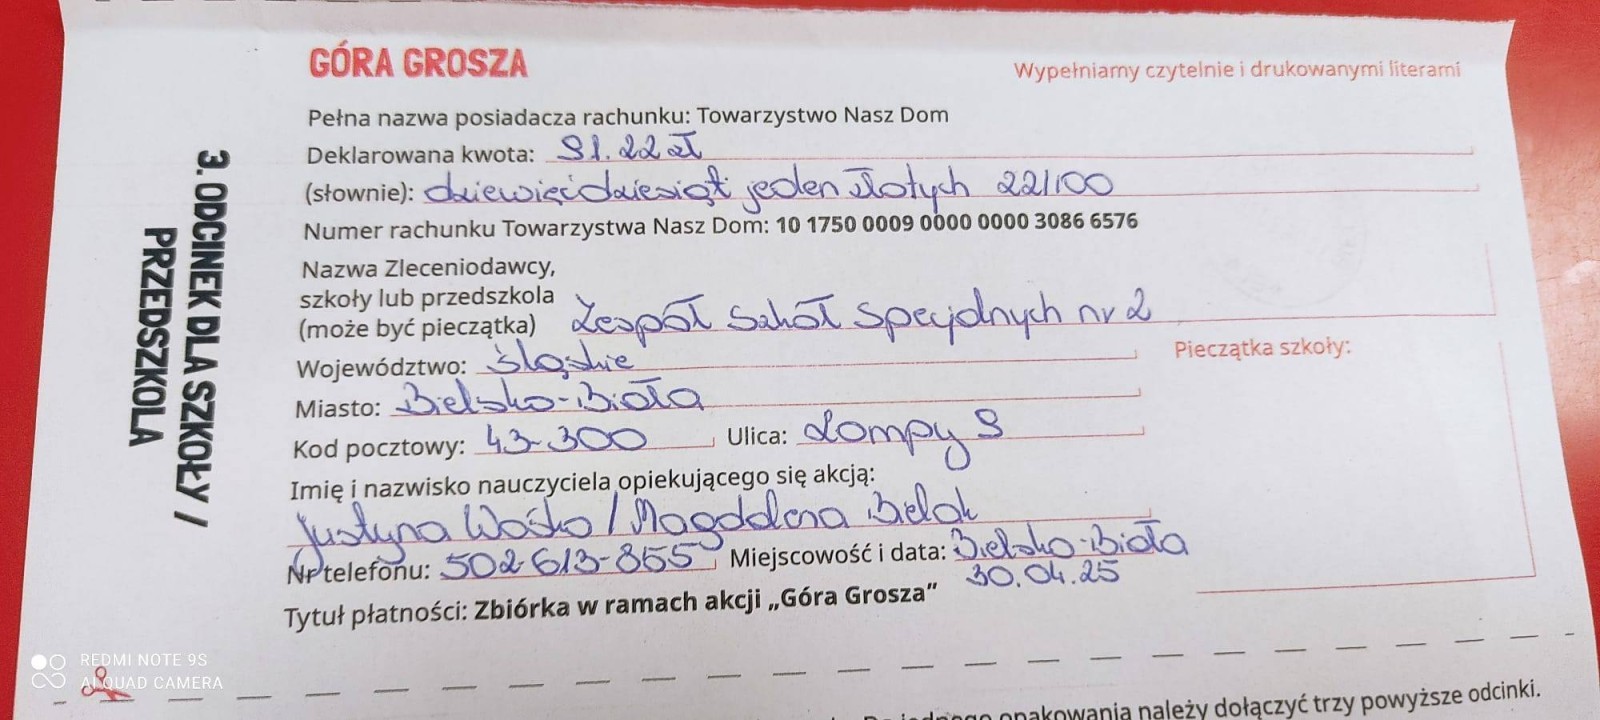 GÓRA GROSZA
Wypełniamy czytelnie i drukowanymi literami
3. ODCINEK DLA SZKOŁY /
PRZEDSZKOLA
Pełna nazwa posiadacza rachunku: Towarzystwo Nasz Dom
Deklarowana kwota: 91.22 zł
(słownie): dziewięćdziesiąt jeden złotych 22/100
Numer rachunku Towarzystwa Nasz Dom: 10 1750 0009 0000 0000 3086 6576
Nazwa Zleceniodawcy,
szkoły lub przedszkola
(może być pieczątka) Zespół Szkół Specjalnych nr 2
Województwo: śląskie
Pieczątka szkoły:
Miasto: Bielsko-Biała
Kod pocztowy: 43-300 Ulica: Lompy 9
Imię i nazwisko nauczyciela opiekującego się akcją:
Justyna Waśko / Magdalena Bielak
Nr telefonu: 502-613-865 Miejscowość i data: Bielsko-Biała
30.04.25
Tytuł płatności: Zbiórka w ramach akcji „Góra Grosza”
REDMI NOTE 9S
AI QUAD CAMERA
opakowania należy dołączyć trzy powyższe odcinki.